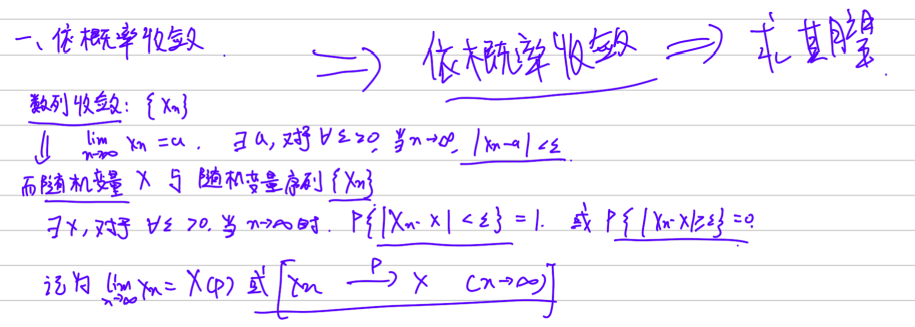 一、依概率收敛 ⟹ 依概率收敛 ⟹ 求其
数列收敛: {Xn}
⇓ lim n→∞ Xn = a. ∃a, 对于 ∀ε>0, 当n→∞, |Xn-a|<ε
而随机变量 X 与 随机变量序列{Xn}
∃X, 对于 ∀ε>0. 当n→∞时. P{|Xn-X|<ε}=1. 或 P{|Xn-X|≥ε}=0.
记为 lim n→∞ Xn = X(P) 或 [Xn —P→ X (n→∞)]